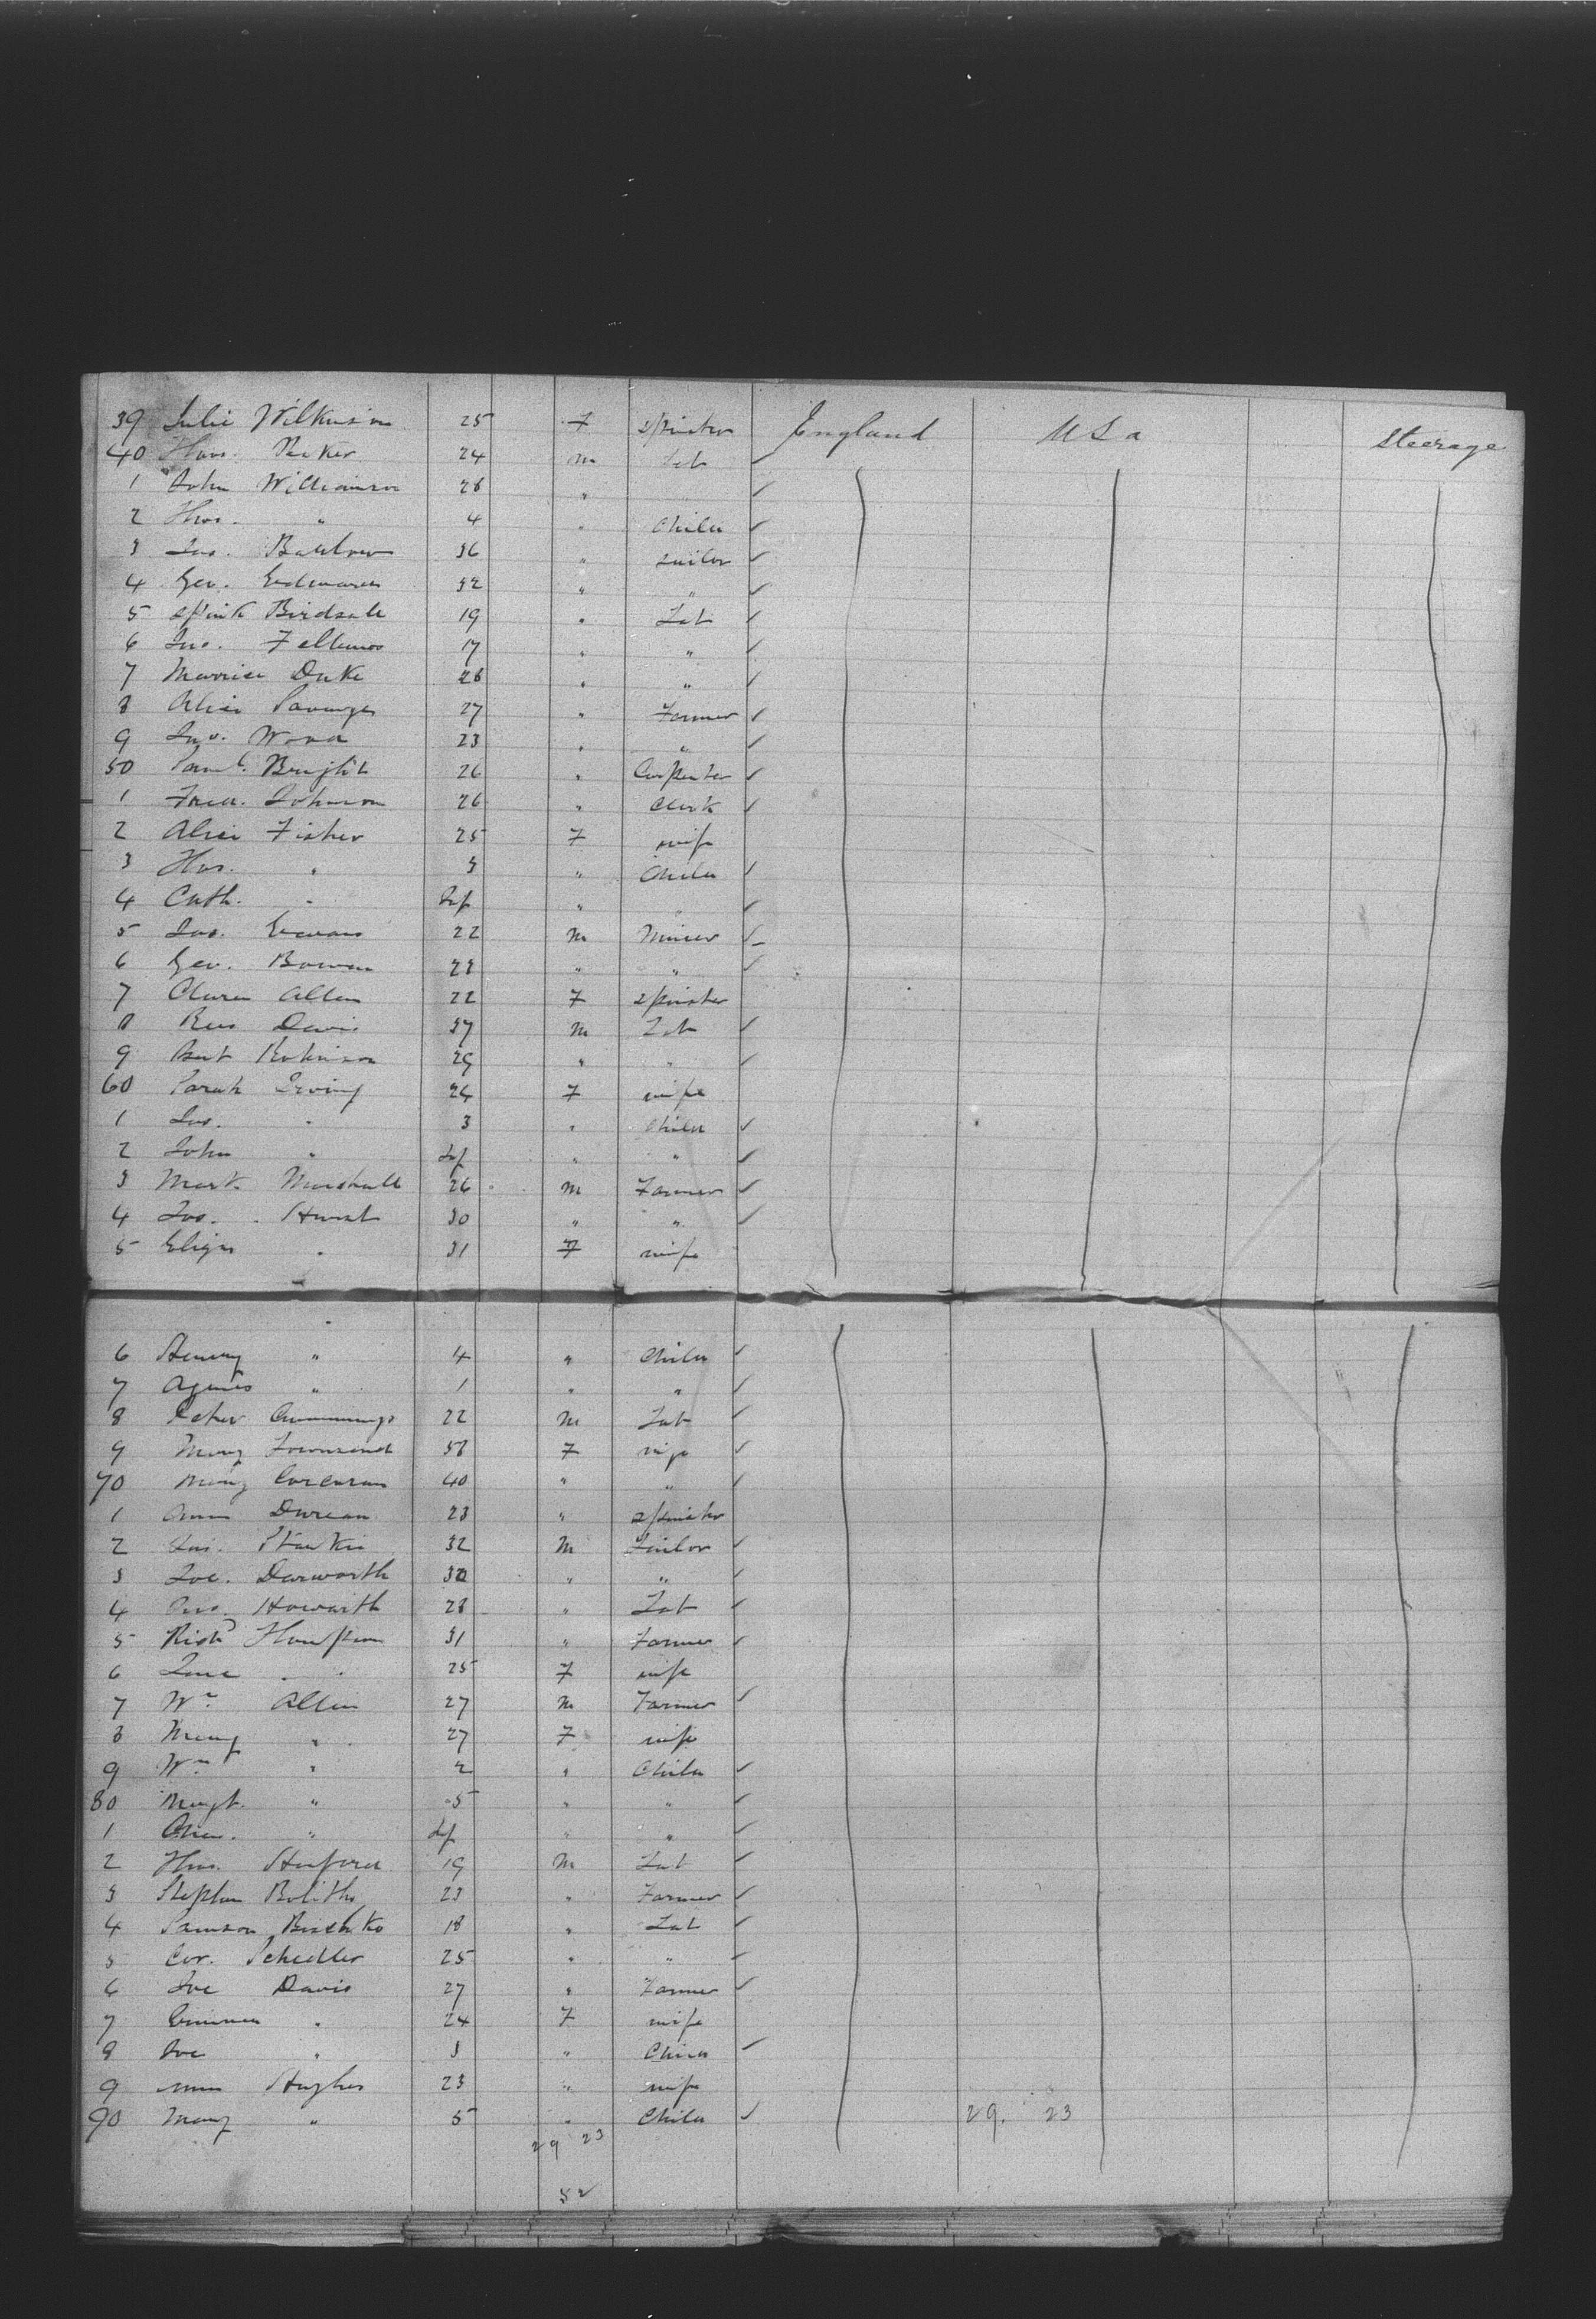 39 Julie Wilkinson 25 F Spinster England USa Steerage
40 Thos. Parker 24 m Lab
1 John Williamson 28 " "
2 Thos. " 4 " Child
3 Jas. 36 " Sailor
4 Geo. Edwards 32 " "
5 Spink Birdsall 19 " Lab
6 Jno. Fellows 17 " "
7 Maurice Duke 28 " "
8 27 " Farmer
9 Jno. Wood 23 " "
50 Saml. Bright 26 " Carpenter
1 Fred. Johnson 26 " Clerk
2 Alice Fisher 25 F wife
3 Thos. " 3 " Child
4 Cath. " Inf " "
5 Jas. Evans 22 m Miner
6 Geo. Bowen 22 " "
7 Clara Allen 22 F Spinster
8 Rees Davis 37 m Lab
9 Robinson 29 " "
60 Sarah Irving 24 F wife
1 Jas. " 3 " Child
2 John " Inf " "
3 Mark Marshall 26 m Farmer
4 Jos. Hurst 30 " "
5 Eliza " 31 F wife
6 Henry " 4 " Child
7 Agnes " 1 " "
8 Peter Cummings 22 m Lab
9 Mary Townsend 58 F wife
70 Mary Corcoran 40 " "
1 Ann Durcan 23 " Spinster
2 Jas. 32 m Tailor
3 Joe. Darworth 32 " "
4 Howarth 28 " Lab
5 Richd Thompson 31 " Farmer
6 Jane " 25 F wife
7 Wm Allen 27 m Farmer
8 Mary " 27 F wife
9 Wm " 2 " Child
80 Margt. " 5 " "
1 " Inf " "
2 Thos. 19 m Lab
3 Stephen Bolitho 23 " Farmer
4 Samson 18 " Lab
5 Schedler 25 " "
6 Joe Davis 27 " Farmer
7 Emma " 24 F wife
8 Joe " 3 " Child
9 Ann Hughes 23 " wife
90 Mary " 5 " Child 29. 23
29 23
52